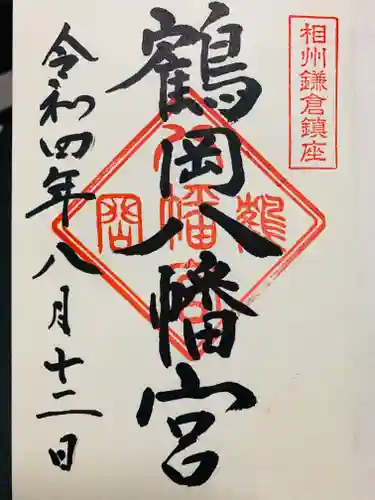 相州鎌倉鎮座
鶴岡八幡宮
令和四年八月十二日
鶴
八幡宮
岡